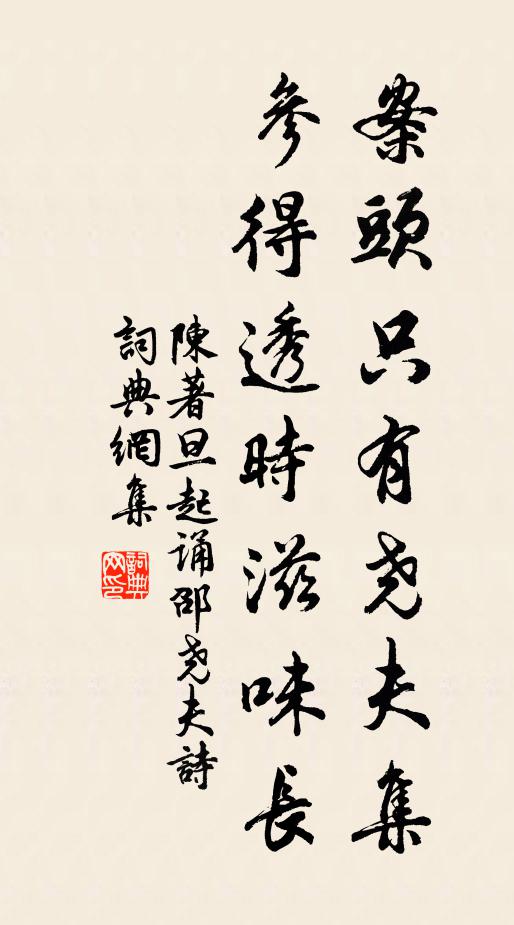 案頭只有尧夫集
參得透時滋味長
陳著旦起誦邵尧夫詩
詞典網集
詞典网印